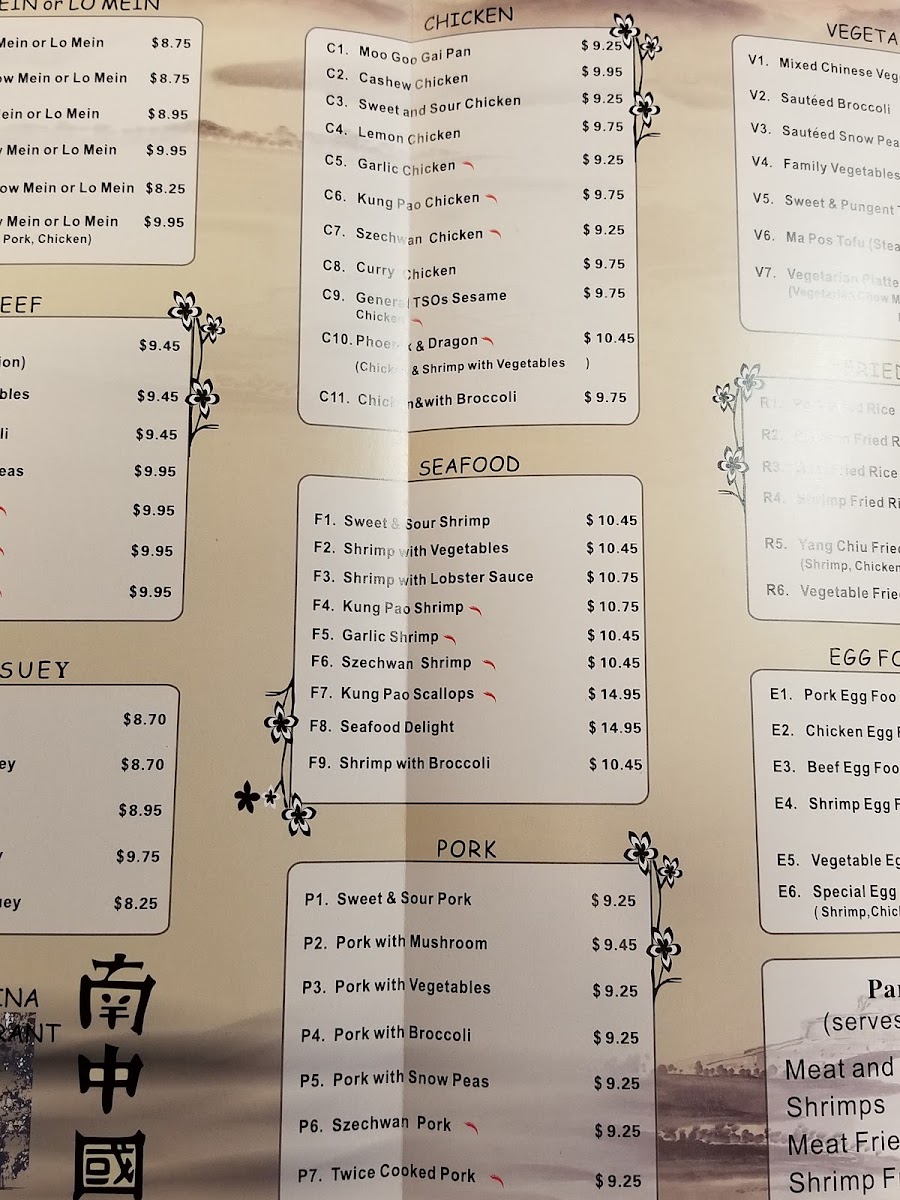 EIN or LO MEIN
Mein or Lo Mein $8.75
ow Mein or Lo Mein $8.75
ein or Lo Mein $8.95
Mein or Lo Mein $9.95
ow Mein or Lo Mein $8.25
Mein or Lo Mein $9.95
Pork, Chicken)
EEF
$9.45
ion)
bles $9.45
li $9.45
eas $9.95
$9.95
$9.95
$9.95
SUEY
$8.70
ey $8.70
$8.95
y $9.75
uey $8.25
INA
RANT
南
中
國
CHICKEN
C1. Moo Goo Gai Pan $9.25
C2. Cashew Chicken $9.95
C3. Sweet and Sour Chicken $9.25
C4. Lemon Chicken $9.75
C5. Garlic Chicken $9.25
C6. Kung Pao Chicken $9.75
C7. Szechwan Chicken $9.25
C8. Curry Chicken $9.75
C9. General TSOs Sesame $9.75
Chicken
C10. Phoenix & Dragon $10.45
(Chicken & Shrimp with Vegetables )
C11. Chicken&with Broccoli $9.75
SEAFOOD
F1. Sweet & Sour Shrimp $10.45
F2. Shrimp with Vegetables $10.45
F3. Shrimp with Lobster Sauce $10.75
F4. Kung Pao Shrimp $10.75
F5. Garlic Shrimp $10.45
F6. Szechwan Shrimp $10.45
F7. Kung Pao Scallops $14.95
F8. Seafood Delight $14.95
F9. Shrimp with Broccoli $10.45
PORK
P1. Sweet & Sour Pork $9.25
P2. Pork with Mushroom $9.45
P3. Pork with Vegetables $9.25
P4. Pork with Broccoli $9.25
P5. Pork with Snow Peas $9.25
P6. Szechwan Pork $9.25
P7. Twice Cooked Pork $9.25
VEGETA
V1. Mixed Chinese Veg
V2. Sautéed Broccoli
V3. Sautéed Snow Pea
V4. Family Vegetables
V5. Sweet & Pungent T
V6. Ma Pos Tofu (Stea
V7. Vegetarian Platte
(Vegetarian Chow M
FRIED
R1. Fried Rice
R2. Fried R
R3. Fried Rice
R4. Shrimp Fried Ri
R5. Yang Chiu Fried
(Shrimp, Chicken
R6. Vegetable Fried
EGG FO
E1. Pork Egg Foo
E2. Chicken Egg F
E3. Beef Egg Foo
E4. Shrimp Egg F
E5. Vegetable Eg
E6. Special Egg
(Shrimp,Chic
Par
(serves
Meat and
Shrimps
Meat Frie
Shrimp F